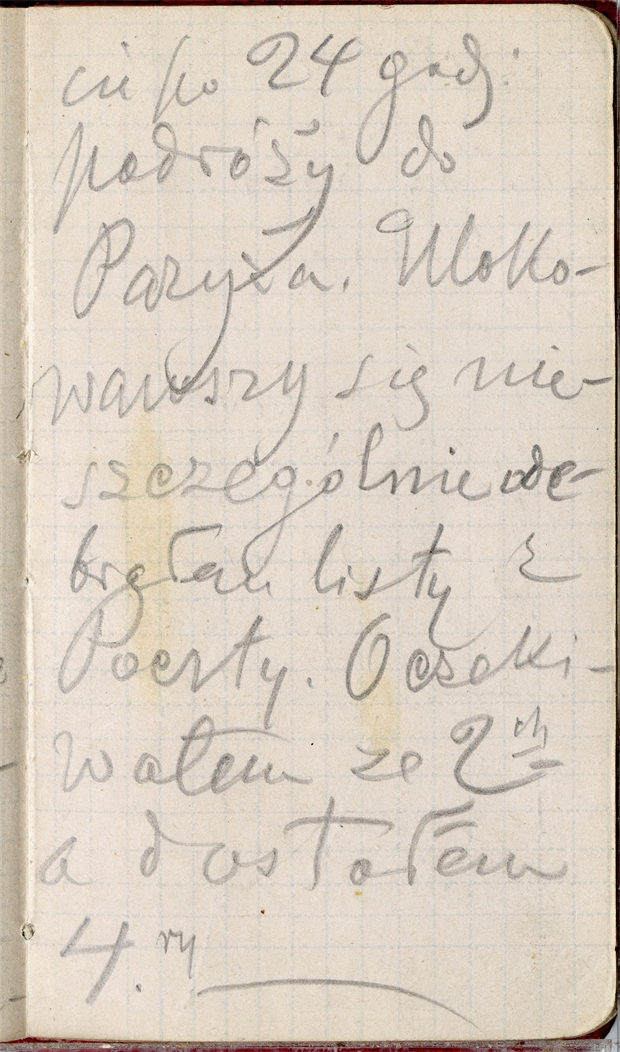 cie po 24 godj.
podróży do
Paryża. Uloko-
wawszy się nie-
szczególnie ode-
brałem listy z
Poczty. Oczeki-
wałem ze 2ch
a dostałem
4.ry